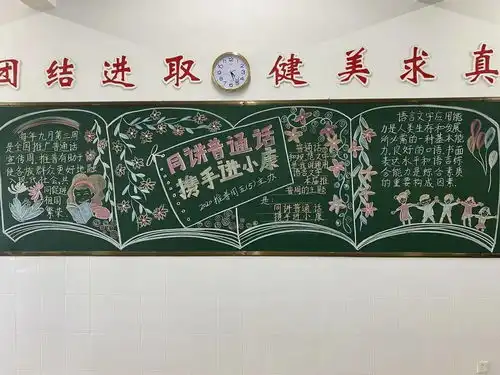 团结进取 健美求真
每年九月第三周
是全国推广普通话
宣传周,推普有助于
使各族群众更好地
祖国
繁荣
同讲普通话
携手进小康
2020推普周
普通话
语言文字
推普周的主题
是:
同讲普通话
携手进小康
语言文字应用能
力是人类生存和发展
所必需的一种基本能
力,良好的口语、书面
表达水平和语言综
合能力是综合素质
的重要构成因素.